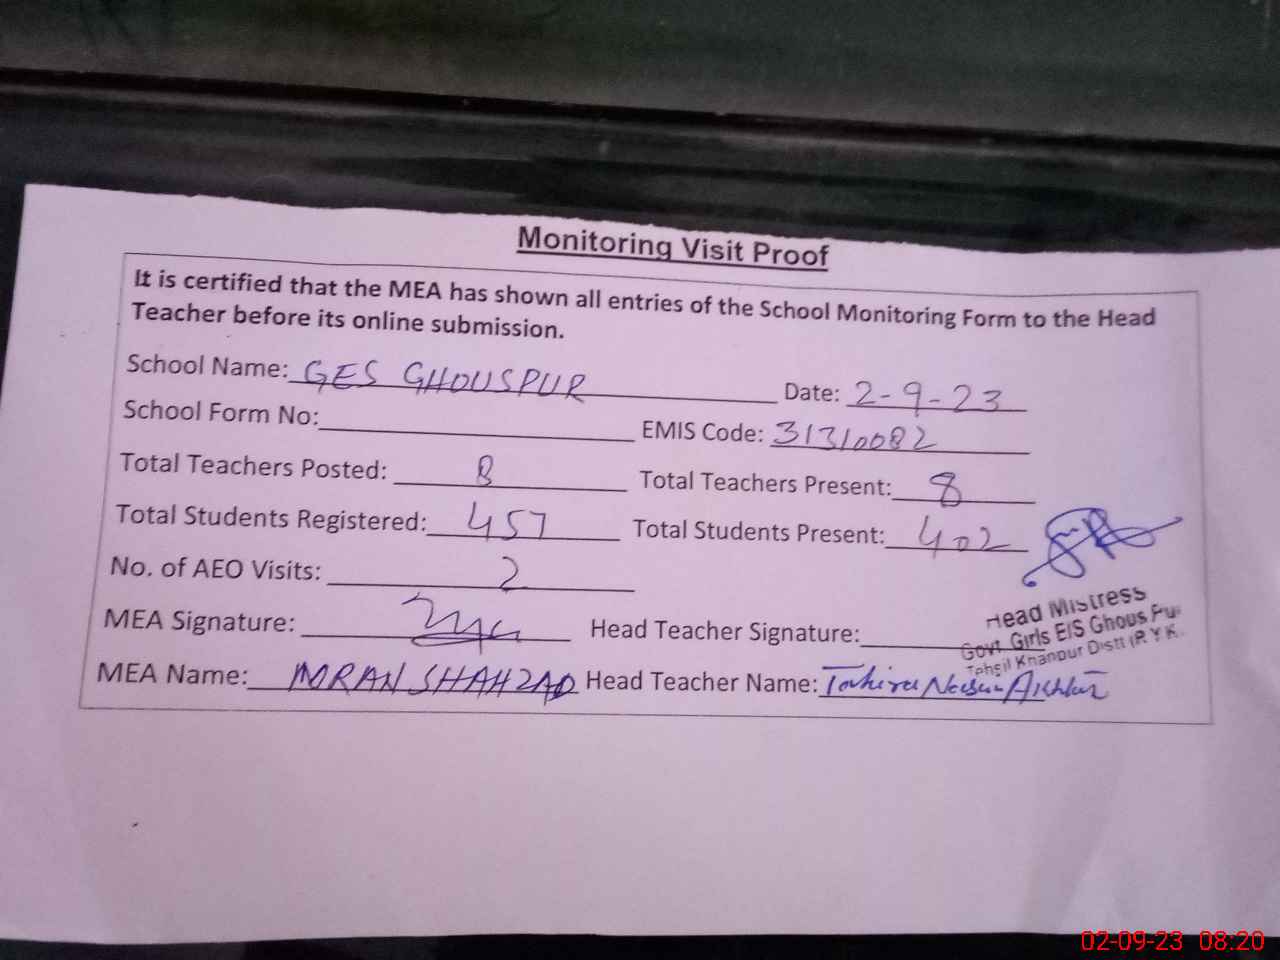 Monitoring Visit Proof
It is certified that the MEA has shown all entries of the School Monitoring Form to the Head
Teacher before its online submission.
School Name: GES GHOUSPUR Date: 2-9-23
School Form No: EMIS Code: 31310082
Total Teachers Posted: 8 Total Teachers Present: 8
Total Students Registered: 457 Total Students Present: 402
No. of AEO Visits: 2
MEA Signature: Head Teacher Signature:
Head Mistress
Govt. Girls E/S Ghous Pur
Tehsil Khanpur Distt (R.Y.K.
MEA Name: IMRAN SHAHZAD Head Teacher Name: Tahira Akhtar
02-09-23 08:20